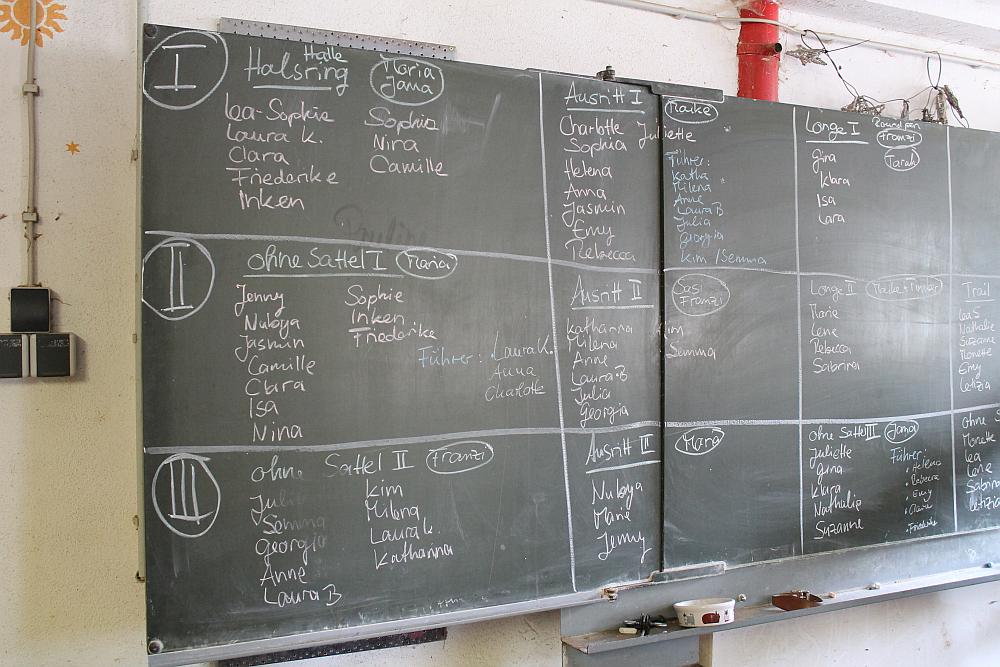 I
Halle
Halsring
Maria
Jama
Lea-Sophie
Laura K.
Clara
Friederike
Inken
Sophia
Nira
Camille
Ausritt I
Maike
Charlotte Juliette
Sophia
Helena
Anna
Jasmin
Emy
Rebecca
Führer:
Katha
Milena
Anne
Laura B
Julia
Georgia
Kim / Semma
Longe I
Roundpen
Franzi
Tarah
Gina
Klara
Isa
Lara
II
ohne Sattel I
Maria
Jenny
Nuboya
Jasmin
Camille
Clara
Isa
Nina
Sophie
Inken
Friederike
Führer: Laura K.
Anna
Charlotte
Ausritt II
Sasi
Franzi
Katharina
Milena
Anne
Laura B
Julia
Georgia
Kim
Semma
Longe II
Marie
Lene
Rebecca
Sabrina
Trail
Lea S
Nathalie
Suzanne
Monette
Emy
Letizia
III
ohne Sattel II
Franzi
Juli
Semma
Georgia
Anne
Laura B
Kim
Milena
Laura K.
Katharina
Ausritt III
Mara
Nuboya
Marie
Jenny
ohne Sattel III
Jama
Juliette
Gina
Klara
Nathalie
Suzanne
Führer:
Helena
Rebecca
Emy
Claire
Friederike
ohne S
Monette
Lea
Lene
Sabrina
Letizia